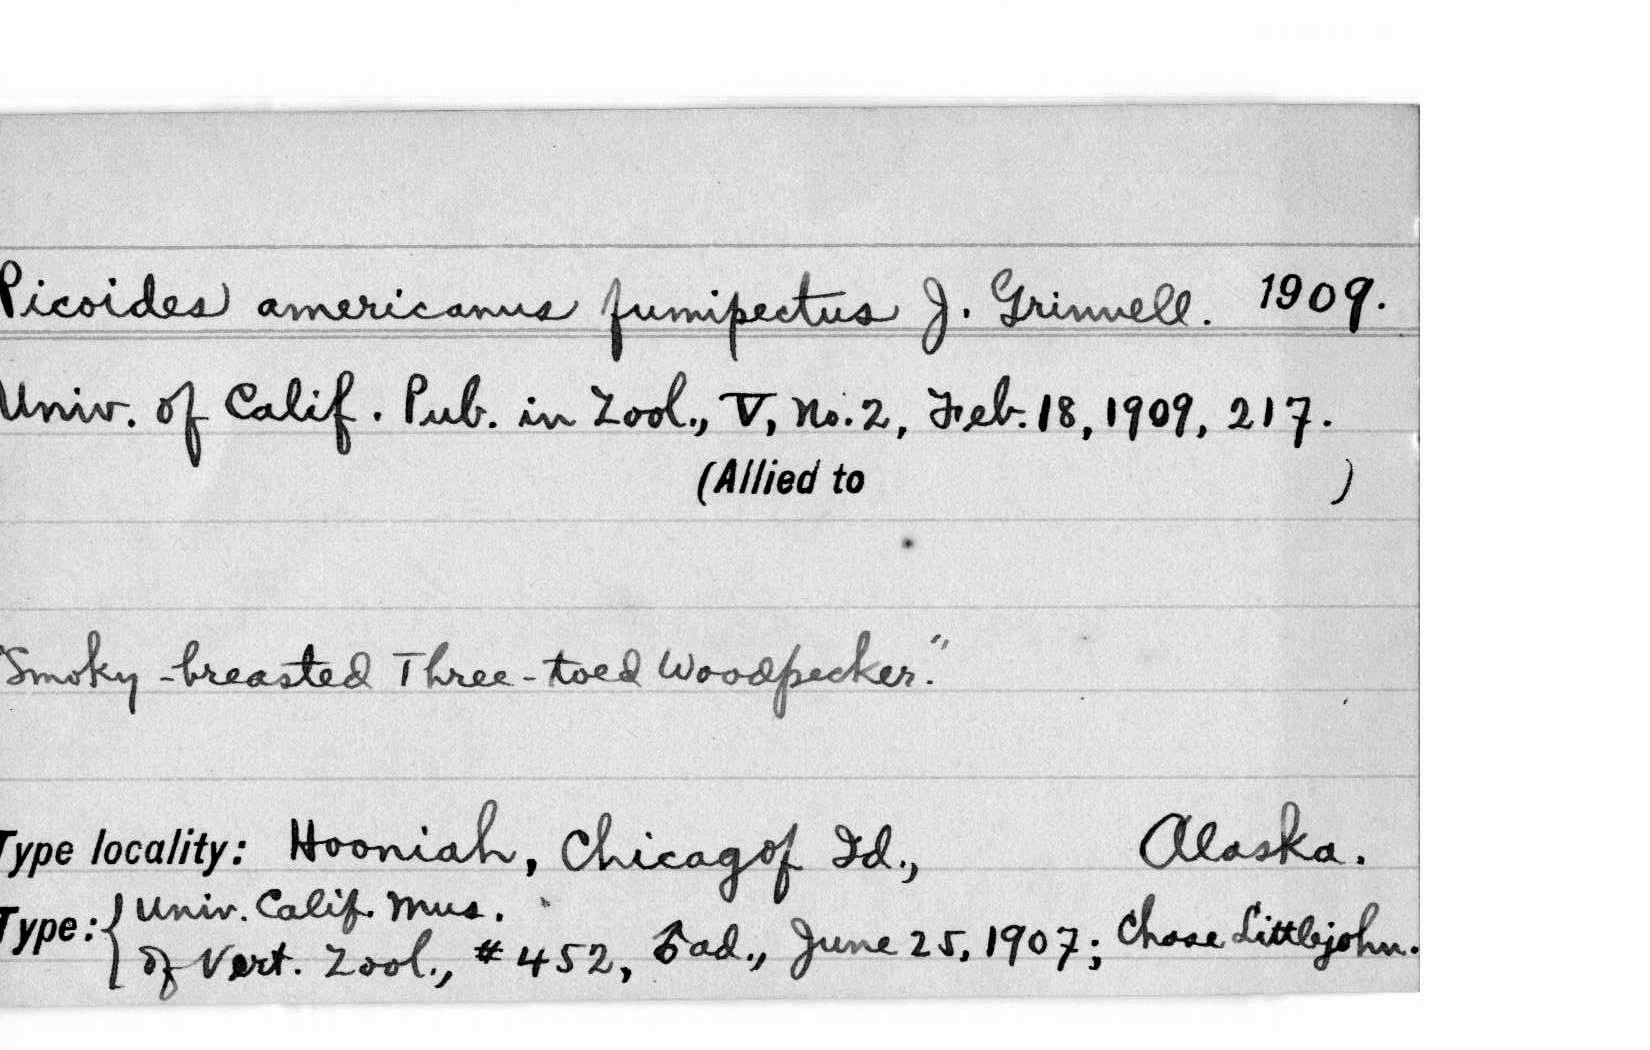 Picoides americanus fumipectus J. Grinnell. 1909.
Univ. of Calif. Pub. in Zool., V, No. 2, Feb. 18, 1909, 217.
(Allied to )
"Smoky-breasted Three-toed Woodpecker."
Type locality: Hooniah, Chicagof Id., Alaska.
Type: { Univ. Calif. Mus.
of Vert. Zool., #452, ♂ ad., June 25, 1907; Chase Littlejohn.